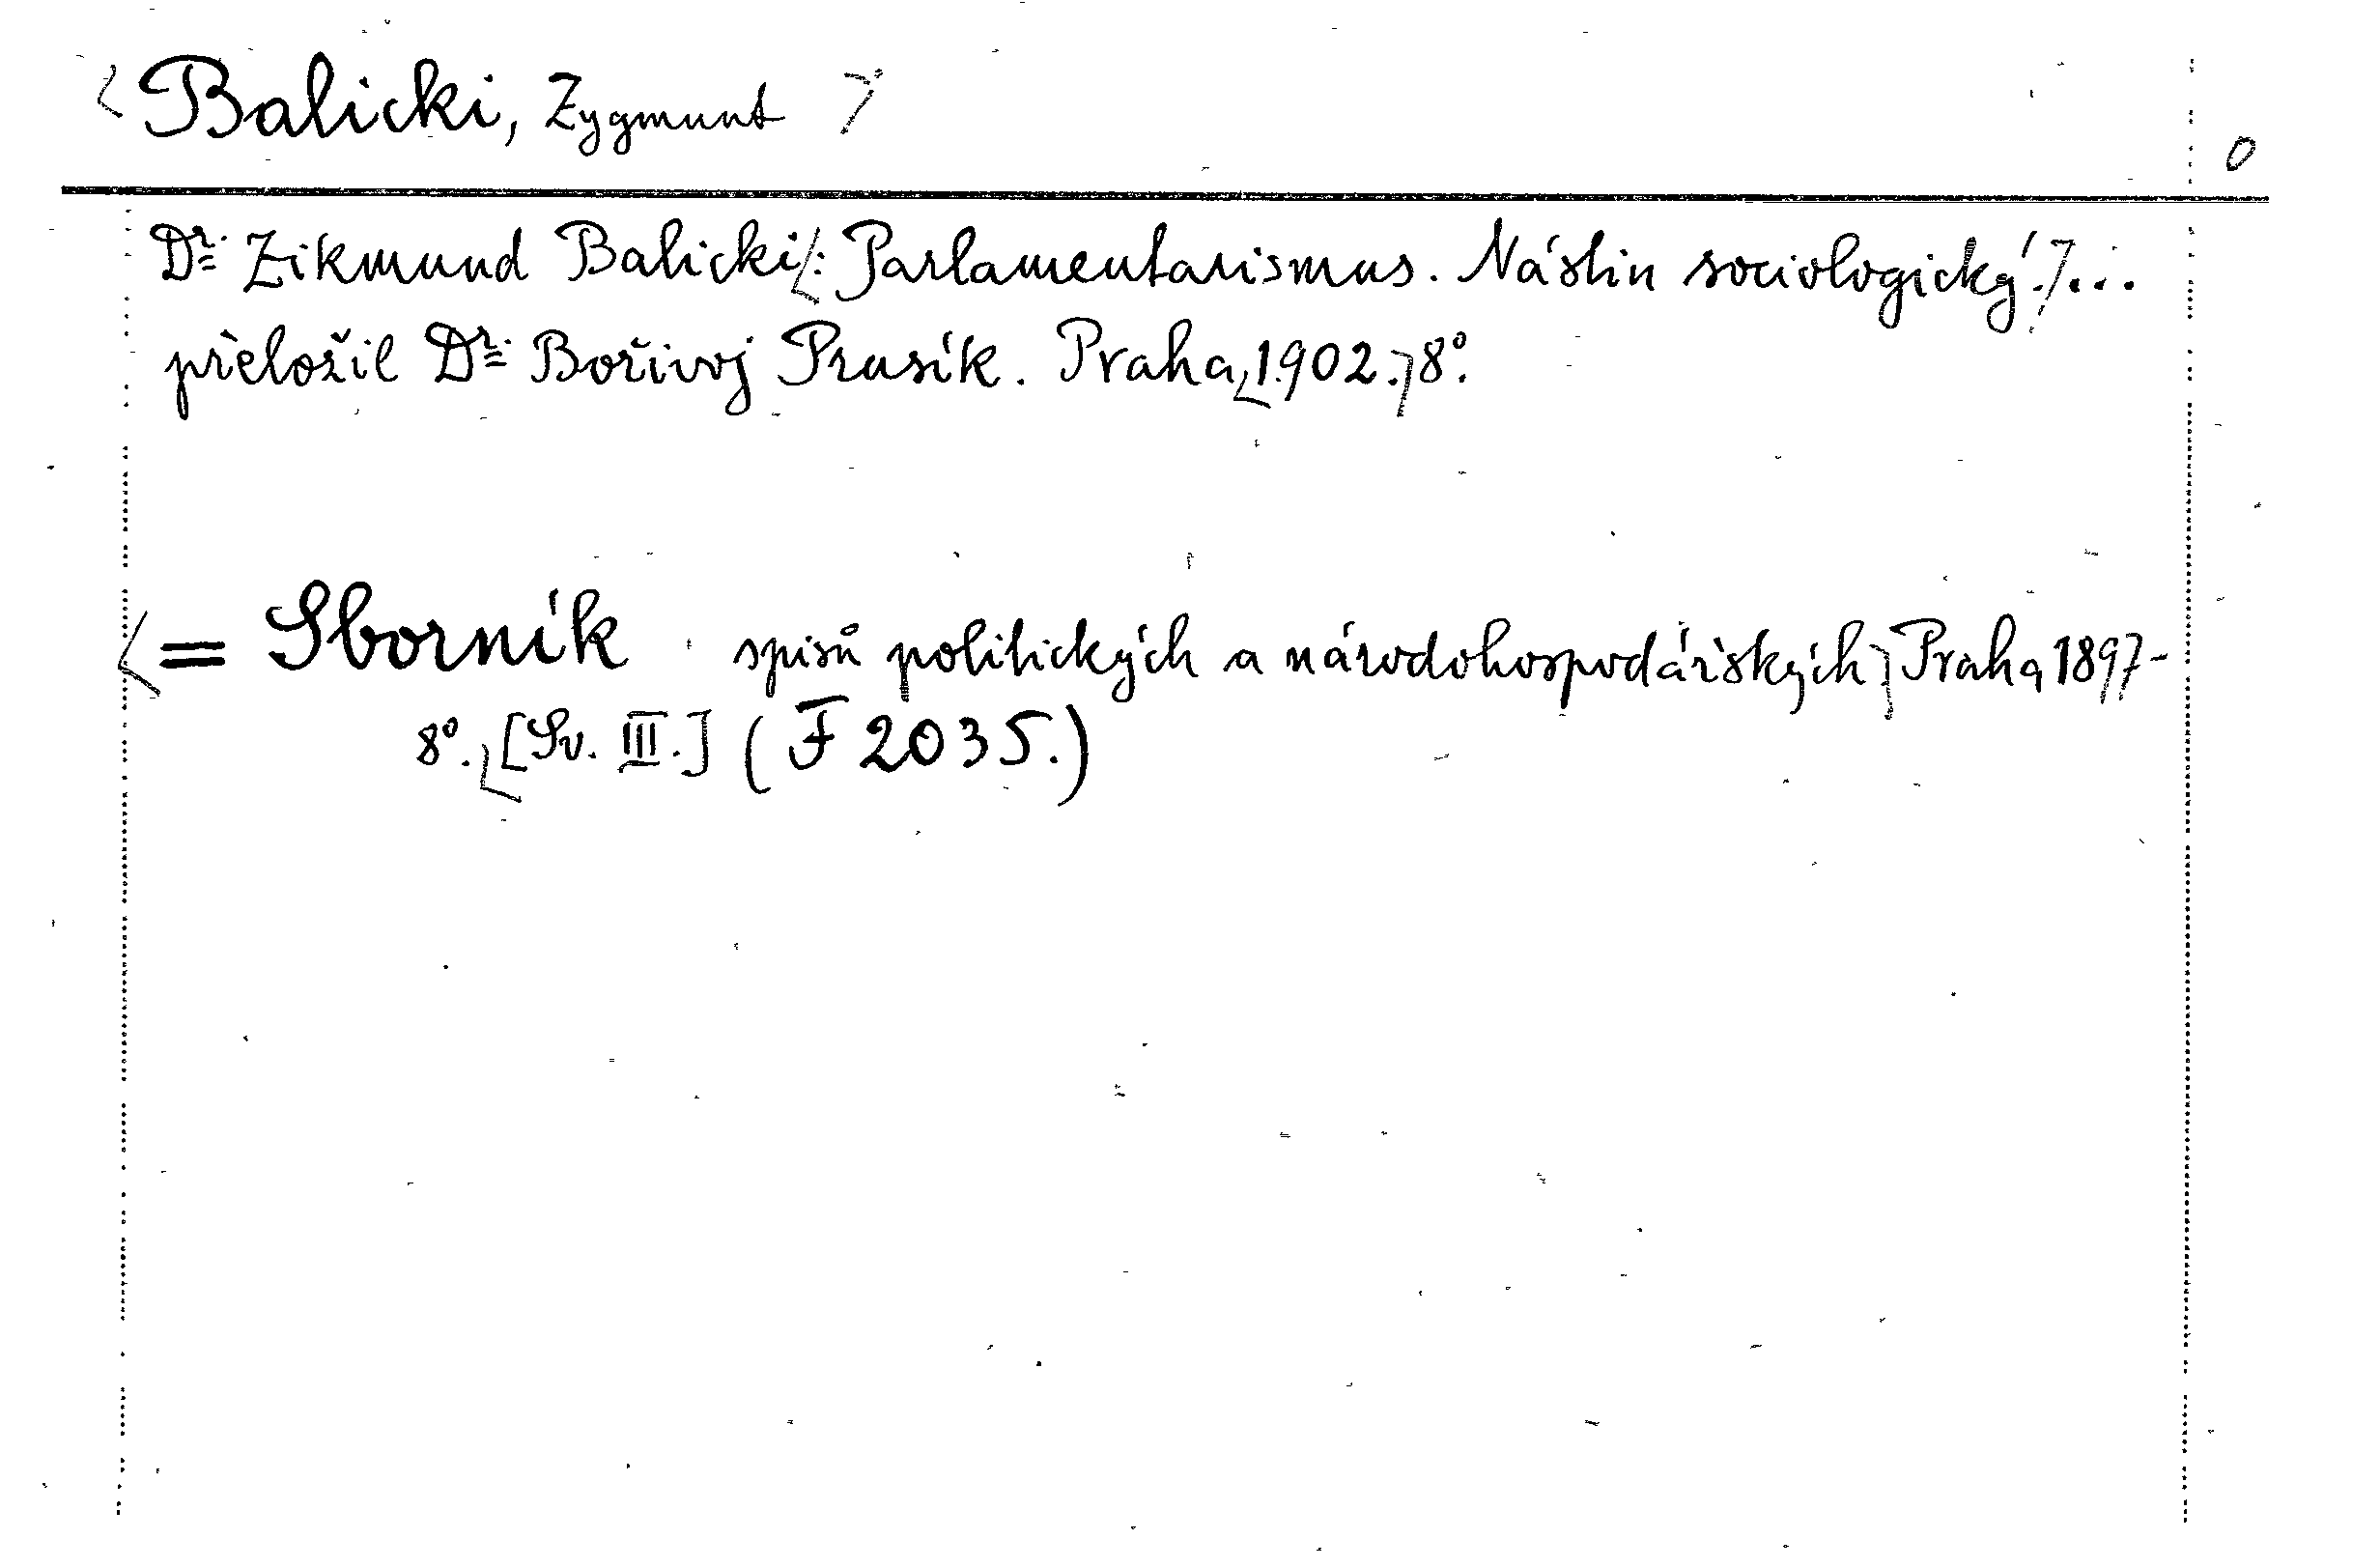 Balicki, Zygmunt
0
Dr. Zikmund Balicki: Parlamentarismus. Nástin sociologický. ...
přeložil Dr. Bořivoj Prusík. Praha, 1902. 8°.
= Sborník spisů politických a národohospodářských, Praha, 1897-
8°. [Sv. III.] (F 2035.)